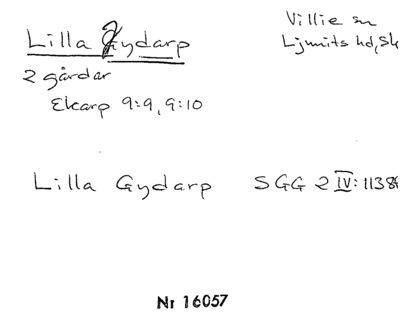 Lilla Gydarp
Villie sn
Ljunits hd, Sk
2 gårdar
Ekarp 9:9, 9:10
Lilla Gydarp SGG 2 IV: 1138
Nr 16057